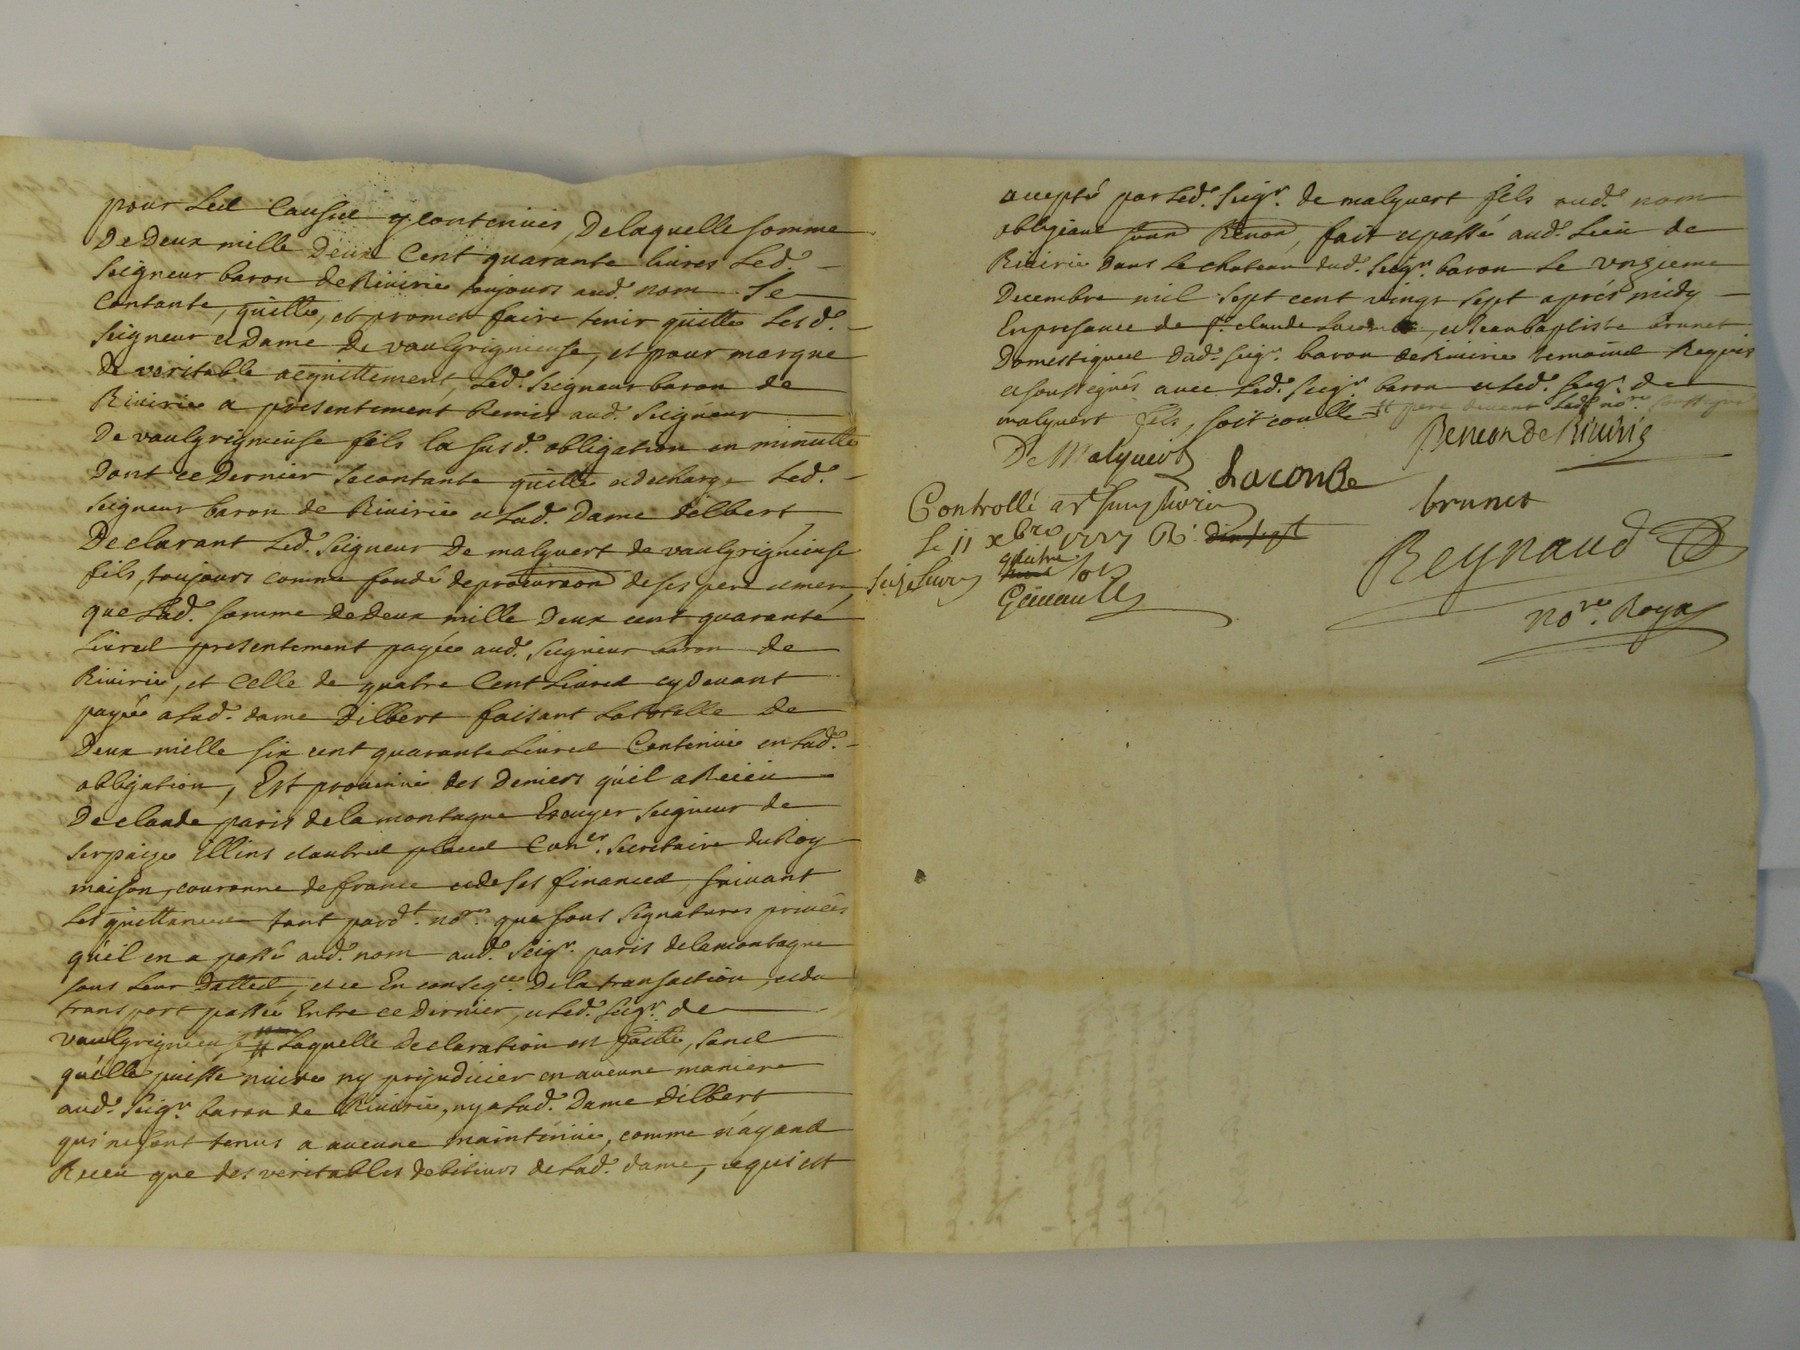 pour Les Causes y contenues, De laquelle somme
De Deux mille Deux Cent quarante livres Led.
Seigneur baron de Riuirie toujours aud. nom se
contante, quitte, et promet faire tenir quitte Lesd.
Seigneur et Dame De vaulgrigneuse, et pour marque
De veritable acquittement, Led. Seigneur baron de
Riuirie a presentement Remis aud. Seigneur
De vaulgrigneuse fils la susd. obligation en minutte
Dont ce Dernier se contante quitte et decharge Led.
Seigneur baron de Riuirie et Lad. Dame Dilbert
Declarant Led. Seigneur De malyuert de vaulgrigneuse
fils, toujours comme fondé de procuraon de ses pere et mere
que Lad. somme de Deux mille Deux cent quarante
Livres presentement payée aud. Seigneur baron de
Riuirie, et Celle de quatre Cent Livres cy devant
payée a Lad. dame Dilbert faisant La totelle De
Deux mille six cent quarante Livres Contenue en Lad.
obligation, Est prouenue des Deniers qu'il a Receu
De claude paris de la montagne Escuyer Seigneur de
Serpaize Illins et autres places Coner. Secretaire du Roy
maison, couronne de france et de ses finances, suivant
Les quittances tant pard.t no.res que sous signatures privées
qu'il en a passé aud. nom aud. Seigr. paris de la montagne
sous Leur Dattes, et ce En conseq.ce De la transaction, et du
transport passée Entre ce Dernier, et Led. Seigr. de
vaulgrigneuse Laquelle declaration est faitte, sans
qu'elle puisse nuire ny prejudicier en aucune maniere
aud. Seigr. baron de Riuirie, ny a Lad. Dame Dilbert
qui ne sont tenus a aucune maintenue, comme n'ayant
Receu que des veritables debiteurs de Lad. dame, ce qui est
accepté par Led. Seigr. de malyuert fils aud. nom
obligeant Renon, fait et passé aud. Lieu de
Riuirie Dans Le chateau dud. Seigr. baron Le vnzieme
Decembre mil Sept cent vingt sept aprés midy
En presance de Sr. claude Lacombe, et Jean baptiste brunet
Domestiques dud. Seigr. baron de Riuirie temoins Requis
et soussignés avec Led. Seigr. baron et Led. Seigr. de
malyuert fils, soit
De Malyuert
Beneon de Riuirie
Lacombe
brunet
Controllé a
Le 11 xbre 1727 R.
seize livres quatre sols
Reynaud
no.re Royal